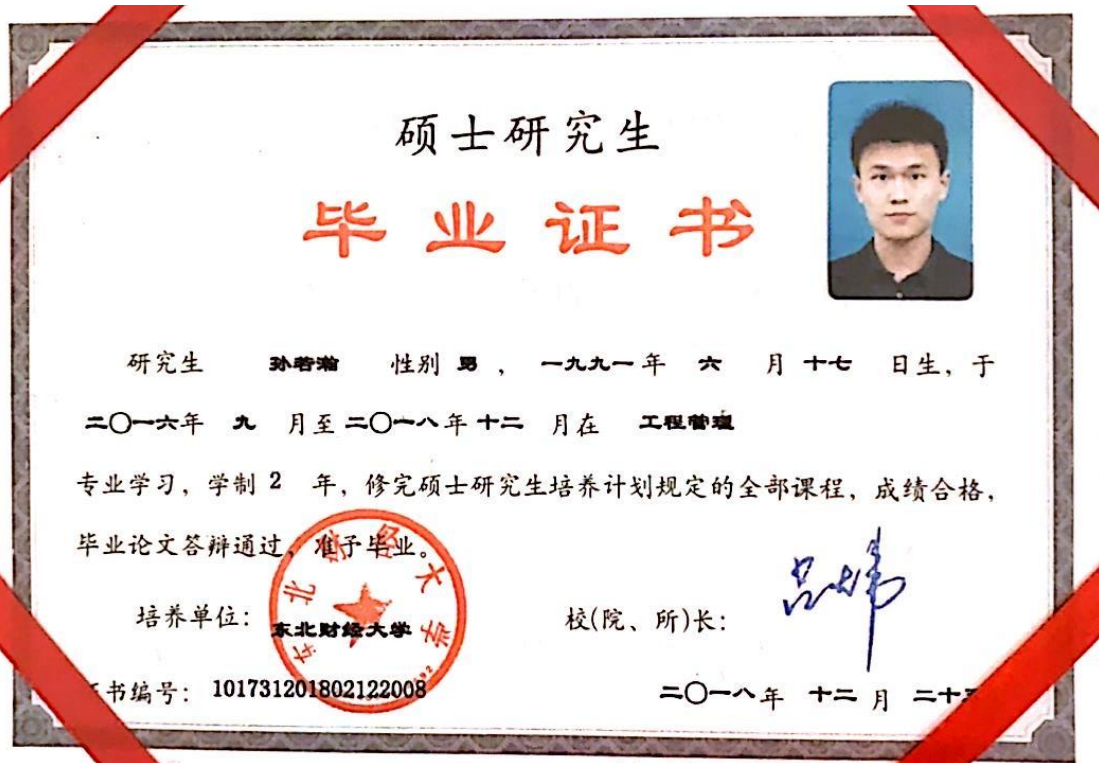 硕士研究生
毕业证书
研究生 孙若瀚 性别 男 , 一九九一年 六 月 十七 日生, 于
二〇一六年 九 月至 二〇一八年 十二 月在 工程管理
专业学习, 学制 2 年, 修完硕士研究生培养计划规定的全部课程, 成绩合格,
毕业论文答辩通过, 准予毕业。
东北财经大学
培养单位: 东北财经大学 校(院、所)长:
书编号: 101731201802122008 二〇一八年 十二 月 二十